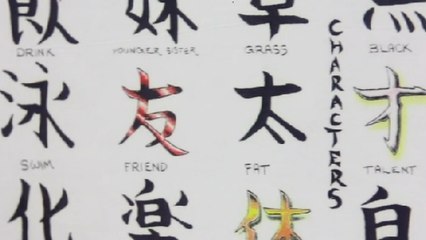 飲 妹 草
DRINK YOUNGER SISTER GRASS BLACK
泳 友 太 才
SWIM FRIEND FAT TALENT
化 楽 体
CHARACTERS